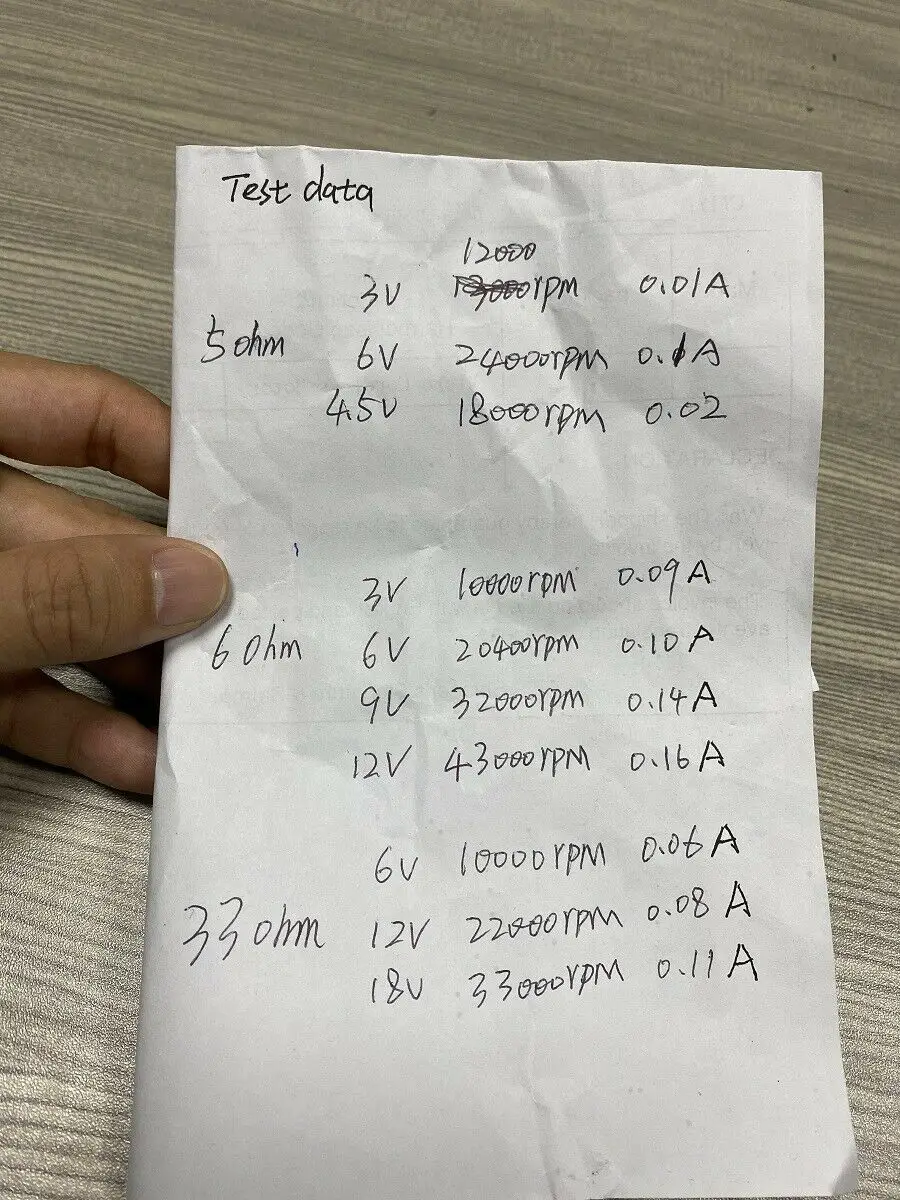 Test data
12000
3V rpm 0.01A
5 ohm 6V 24000rpm 0.1A
4.5V 18000rpm 0.02
3V 10000rpm 0.09A
6 ohm 6V 20400rpm 0.10A
9V 32000rpm 0.14A
12V 43000rpm 0.16A
6V 10000rpm 0.06A
33 ohm 12V 22000rpm 0.08A
18V 33000rpm 0.11A
DECLARATION